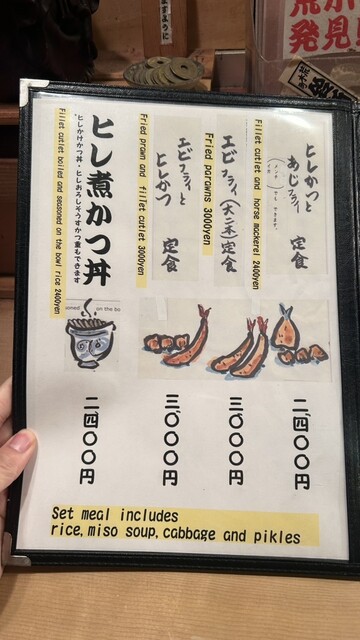 ますように
荒
発見
ヒレかつと
あじフライ
定食
Fillet cutlet and horse mackerel 2400yen
二、四〇〇円
エビフライ(大二本)定食
Fried parawns 3000yen
三、〇〇〇円
エビフライと
ヒレかつ
定食
Fried prawn and fillet cutlet 3000yen
三、〇〇〇円
ヒレ煮かつ丼
ヒレかけかつ丼・ヒレおろしそうすかつ重もできます
Fillet cutlet boiled and seasoned on the bowl rice 2400yen
oined
on the bo
二、四〇〇円
Set meal includes
rice, miso soup, cabbage and pickles